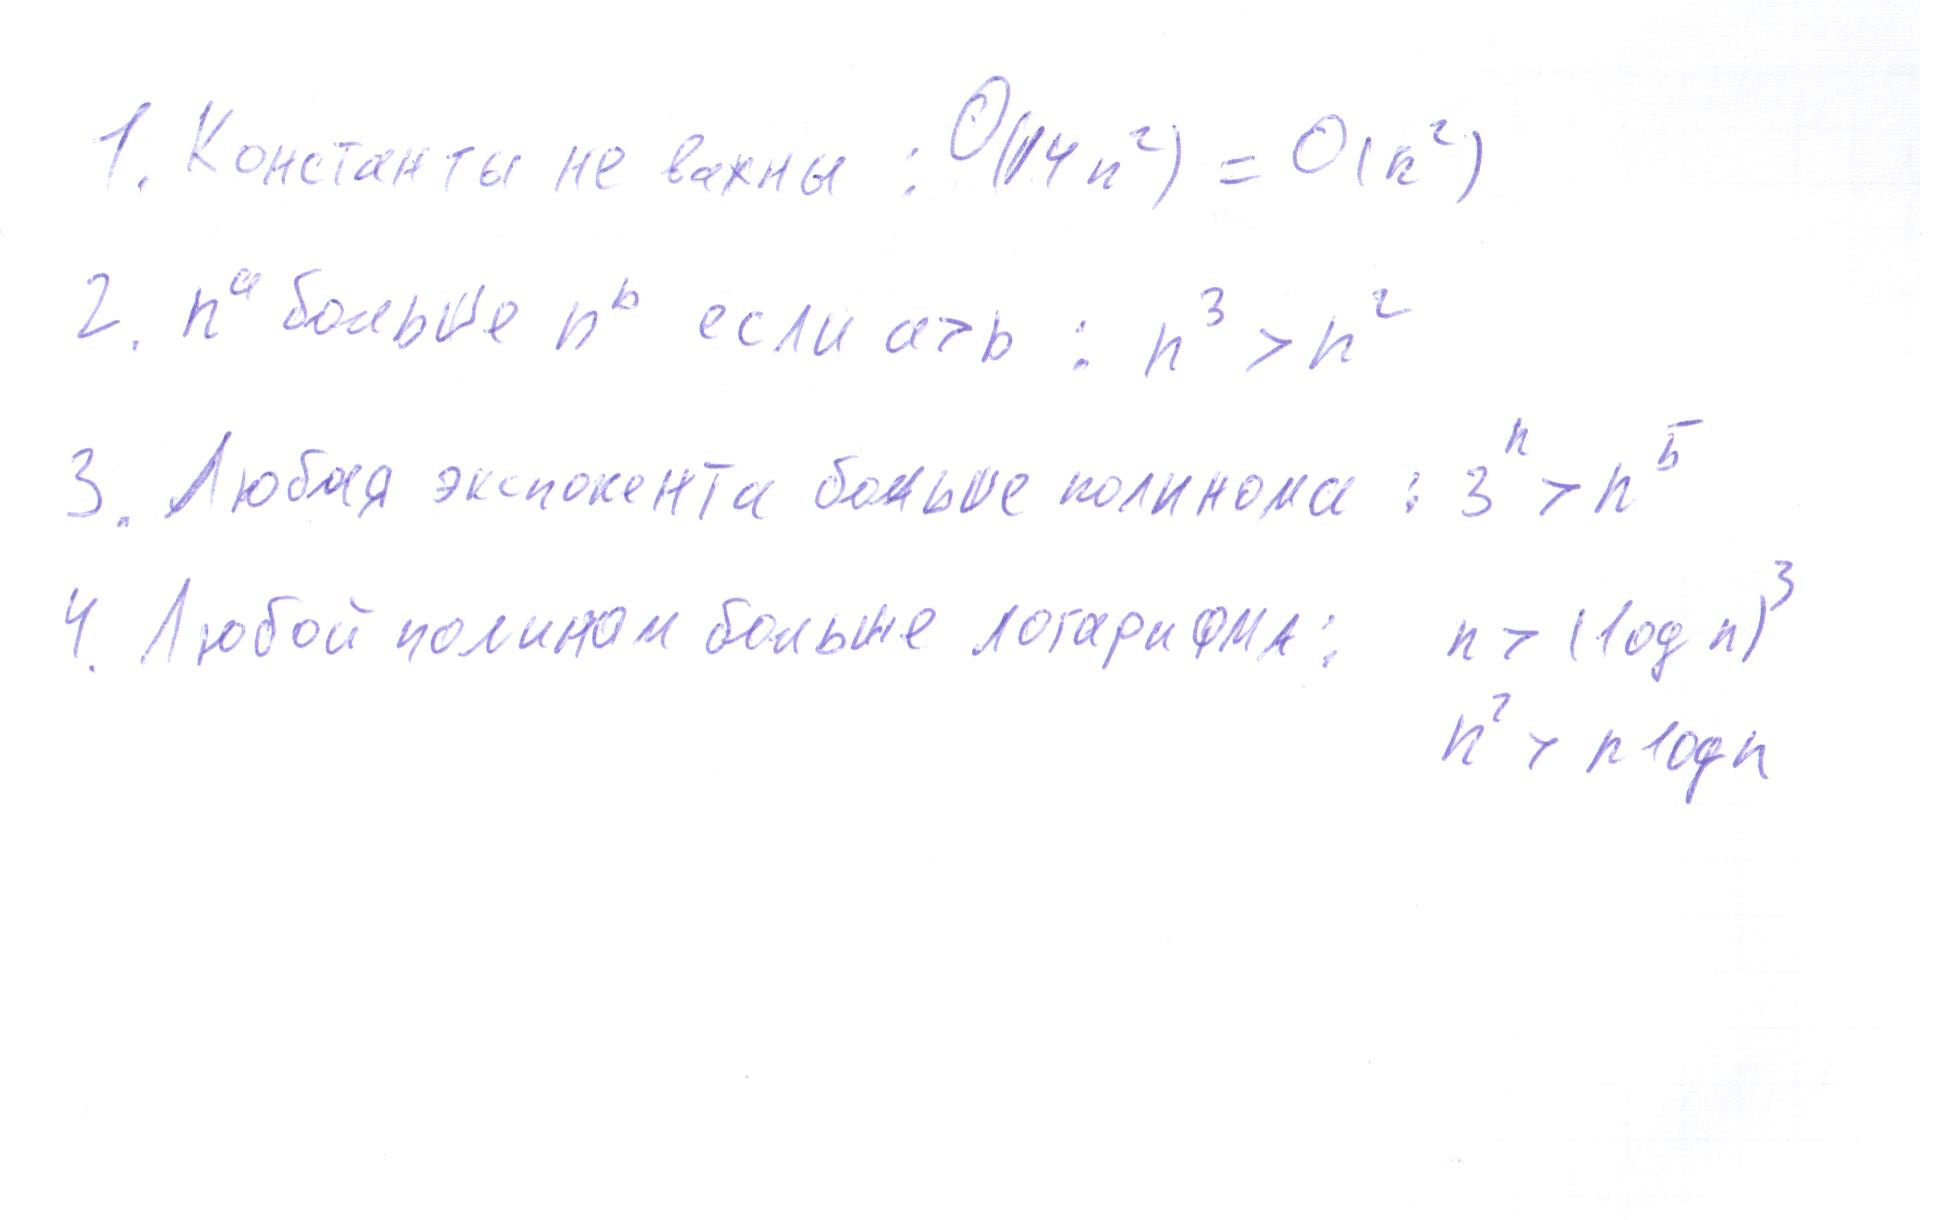 1. Константы не важны : O(14n²) = O(n²)
2. nᵃ больше nᵇ если a>b : n³ > n²
3. Любая экспонента больше полинома : 3ⁿ > n⁵
4. Любой полином больше логарифма : n > (log n)³
n² > n log n